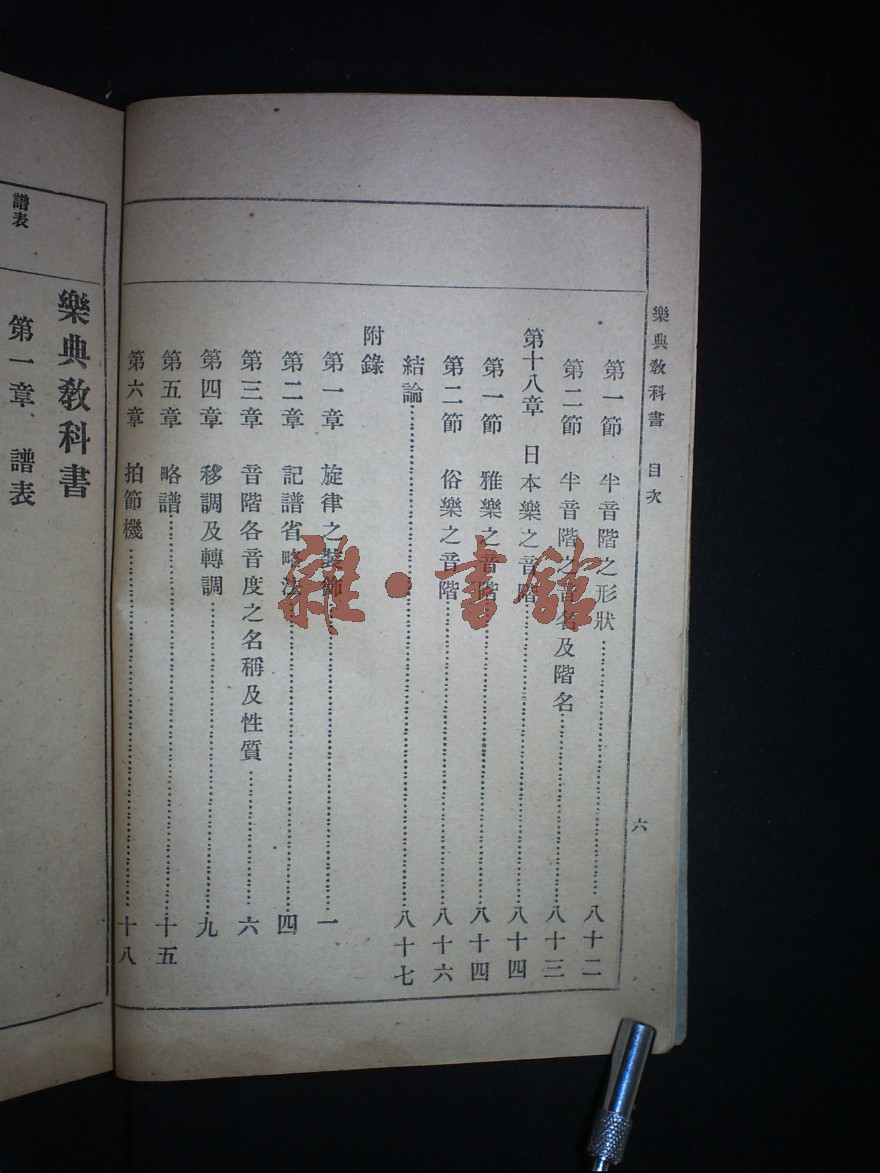 樂典敎科書 目次 六
第一節 半音階之形狀………八十二
第二節 半音階之音名及階名………八十三
第十八章 日本樂之音階………八十四
第一節 雅樂之音階………八十四
第二節 俗樂之音階………八十六
結論………八十七
附錄
第一章 旋律之裝飾………一
第二章 記譜省略法………四
第三章 音階各音度之名稱及性質………六
第四章 移調及轉調………九
第五章 略譜………十五
第六章 拍節機………十八
樂典敎科書
譜表
第一章、譜表
雜·書館